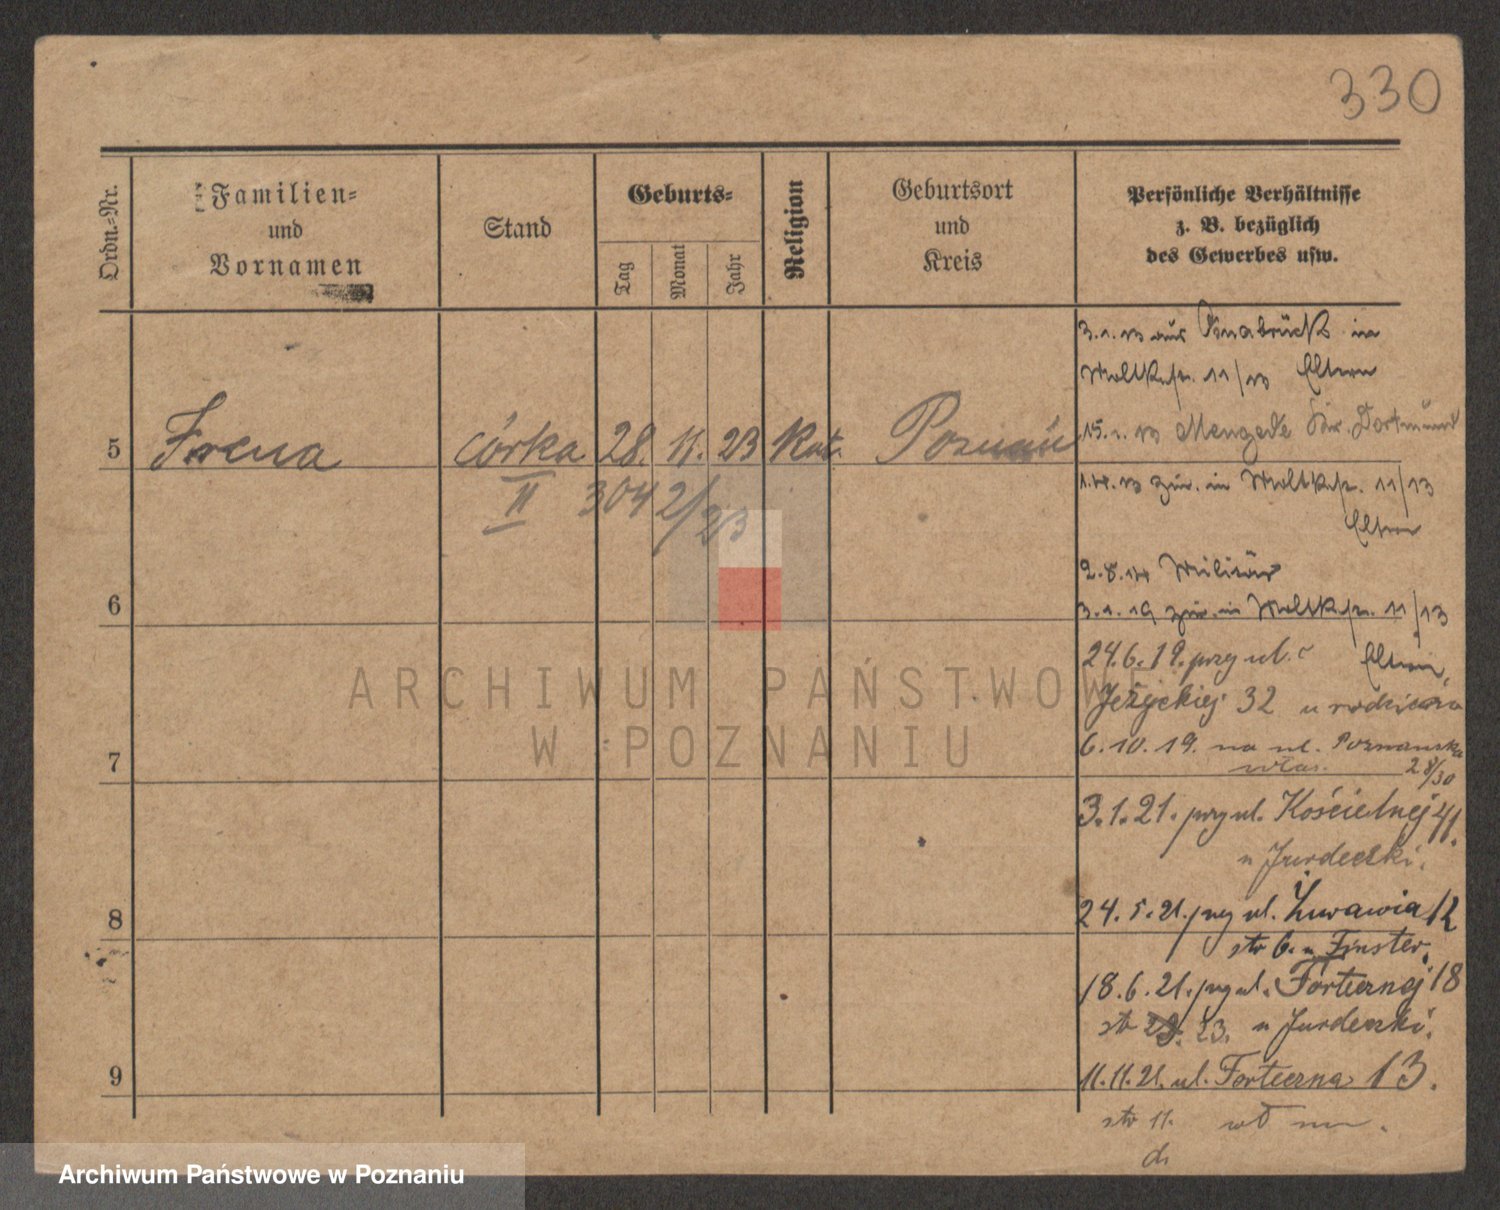 330
Ordn.-Nr.
Familien-
und
Vornamen
Stand
Geburts-
Tag
Monat
Jahr
Religion
Geburtsort
und
Kreis
Persönliche Verhältnisse
z. B. bezüglich
des Gewerbes usw.
5 Irena córka 28. 11. 23 Kat. Poznań
II 304 2/23
6
7
8
9
3.1.13 aus Osnabrück in
Moltkestr. 11/13 Eltern
15. 1. 13 Mengede Kr. Dortmund
zur. in Moltkestr. 11/13
Eltern
2.8.14 Militär
3.1.19 zur. in Moltkestr. 11/13
Eltern
24.6.19. przy ul.
Jeżyckiej 32 u
6.10.19. na ul. Poznańska
28/30
3.1.21. przy ul. Kościelnej 41.
u
24. 5. 21. przy ul. 12
str 6. u
18.6.21. przy ul. Fortecznej 18
str 23. u
11.11.21. ul. Forteczna 13.
str 11.
ARCHIWUM PAŃSTWOWE
W POZNANIU
Archiwum Państwowe w Poznaniu